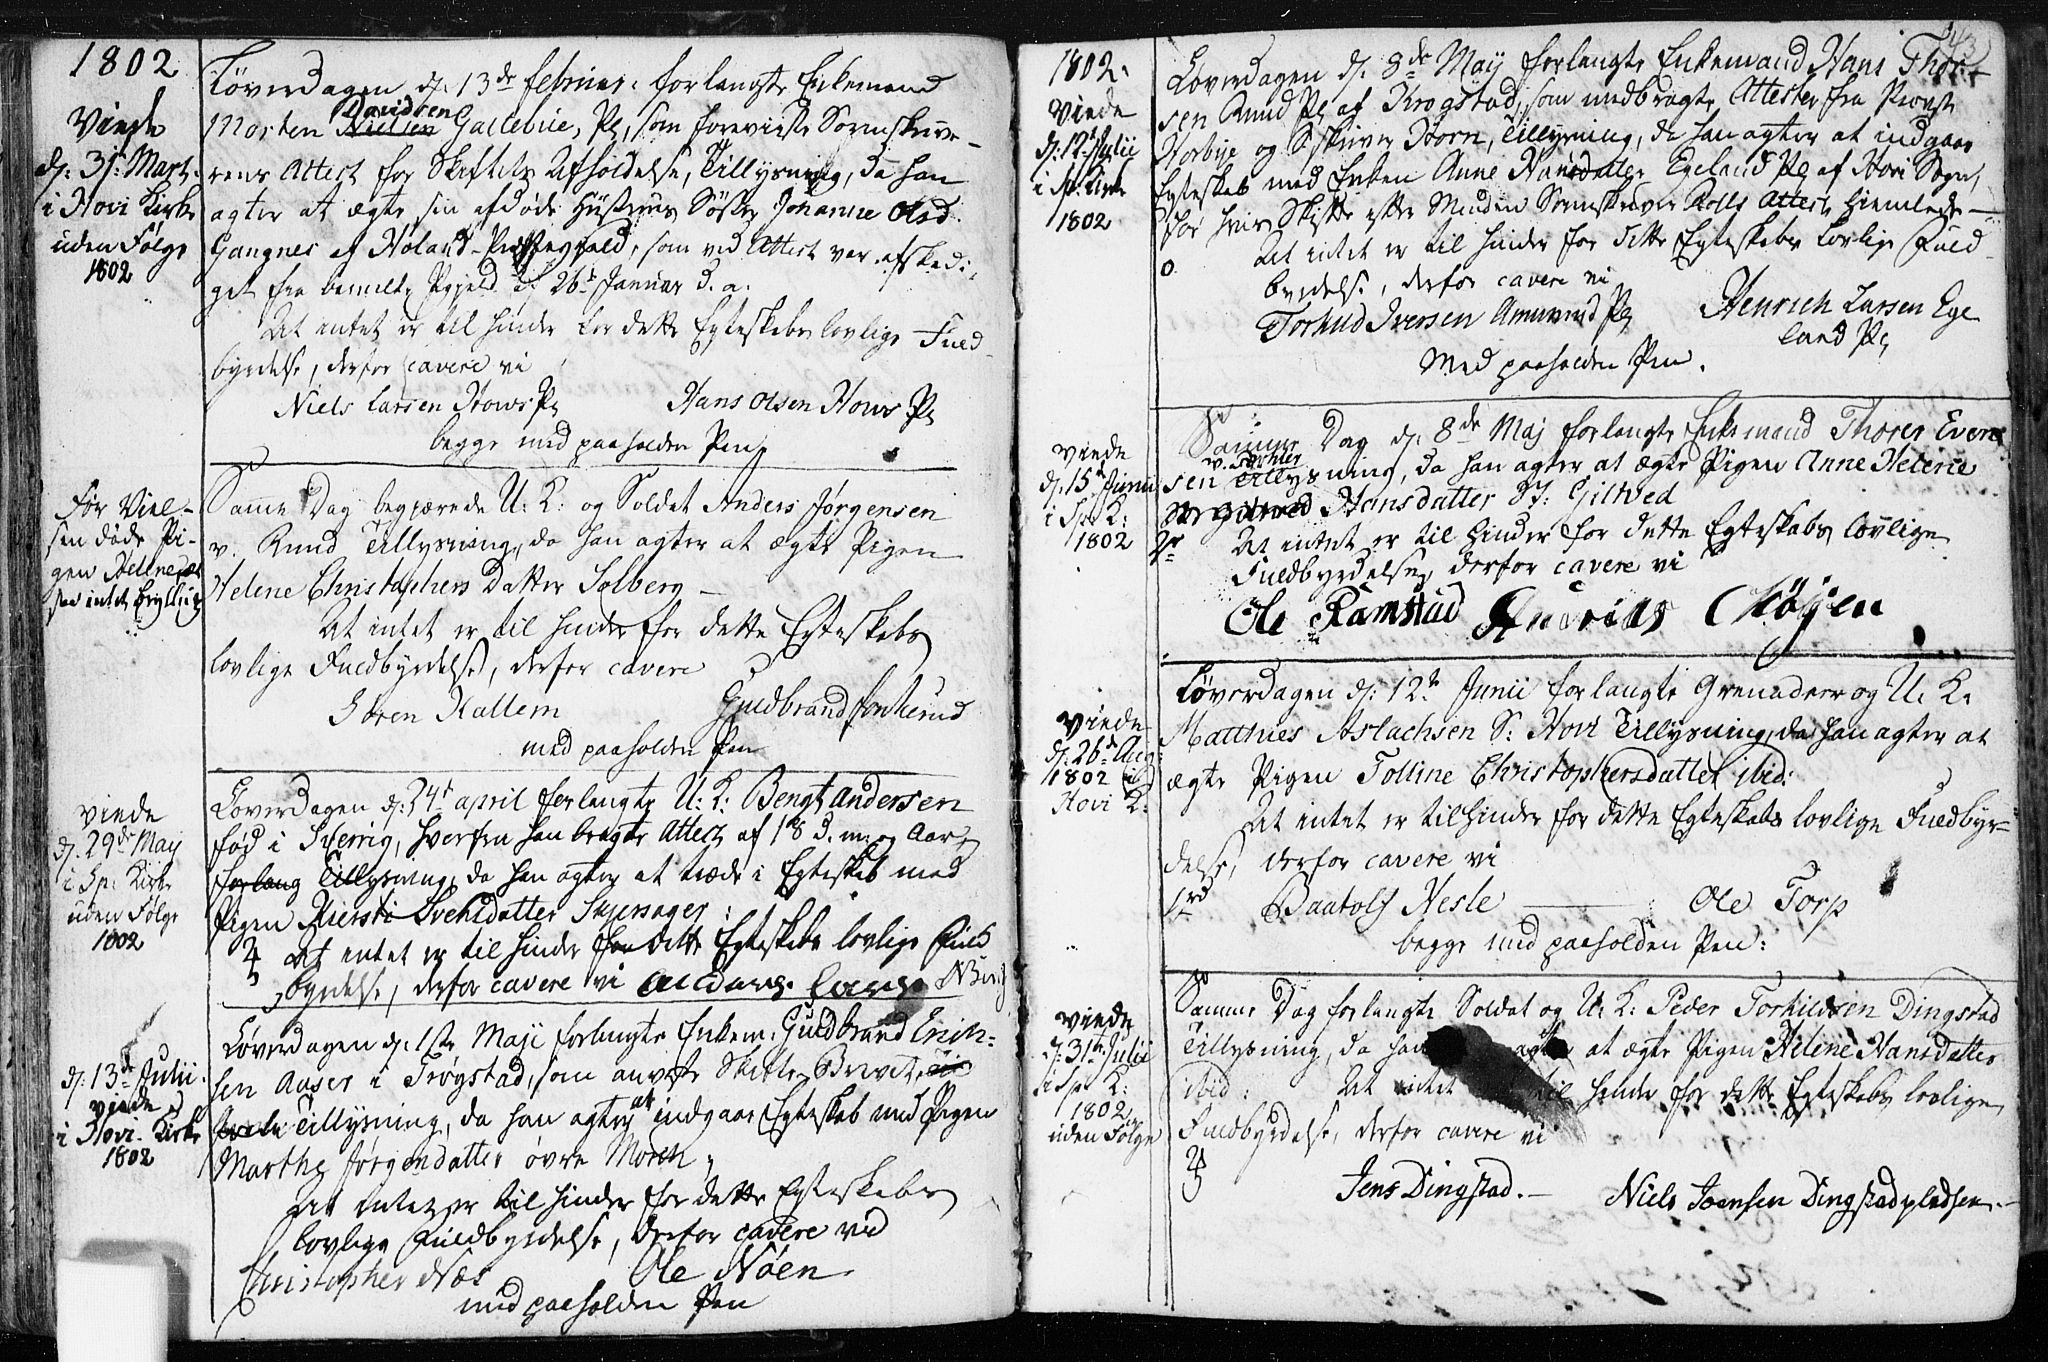 1802
Viede
d: 31t Mart.
i Hovi Kirke
uden Følge
1802
Løverdagen d: 13de Februar: forlangte Enkemand
Davidsen
Morten Nielsen Gallebue, Pl, som foreviiste Sorenskrive-
rens Attest for Skiftets Afholdelse, Tillysning, da han
agter at ægte sin afdøde Hustrues Søster Johanne Olsd.
Gangnes af Høland Præstegield, som ved Attest var afskedi-
get fra bemelte Pgield d: 26t Januar d. a.
At intet er til hinder for dette Egteskabs lovlige Fuld-
byrdelse, derfor cavere vi
Niels Larsen Hows Pl Hans Olsen Hows Pl
begge med paaholden Pen.
Før Viel-
sen døde Pi-
gen Hellene,
intet Bryllup
Samme Dag begjærede U: K: og Soldat Anders Jørgensen
v. Rund Tillysning, da han agter at ægte Pigen
Helene Christophers Datter Solberg
At intet er til hinder for dette Egteskabs
lovlige Fuldbyrdelse, derfor cavere
Søren Hallem Guldbrand
med paaholden Pen
viede
d: 29de May
i Sp: Kirke
uden Følge
1802
Løverdagen d: 24t april forlangte U: K: Bengt Andersen
fød i Sverrig, hvorfra han bragte Attest af 18 d. m. og Aar,
forlang Tillysning, da han agter at træde i Egteskab med
Pigen Kiersti Svensdatter Skjersager:
At intet er til hinder for dette Egteskabs lovlige Fuld
byrdelse, derfor cavere vi
d: 13de Julii
viede
i Hovi Kirke
1802
Løverdagen d: 1ste Maji forlangte Enkem: Guldbrand Erich-
sen Auser i Trøgstad, som anviste Skifte-Brevet,
Tillysning, da han agter at indgaae Egteskab med Pigen
Marthe Jørgendatter øvre Moeck
At intet er til hinder for dette Egteskabs
lovlige Fuldbyrdelse, derfor cavere vi
Christopher Næs Ole Nøen
med paaholden Pen
43
1802.
Viede
d: 12t Julii
i Sp: Kirke
1802
Løverdagen d: 8de May forlangte Enkemand Hans Thor-
sen Rund Pl af Krogstad, som medbragte Attester fra Provst
Norbye og Sskriver Horn, Tillysning, da han agter at indgaae
Egteskab med Enken Anne Hansdatter Egeland Pl af Hovi Sogn,
for hvis Skifte efter Manden Sorenskriver Rolls Attest hiemlede
At intet er til hinder for dette Egteskabs lovlige Fuld-
byrdelse, derfor cavere vi
Torkild Iversen Amunrud Pl Henrich Larsen Ege
land Pl
Med paaholden Pen.
viede
d: 15d Junii
i Sp: K:
1802
Samme Dag d: 8de Maj forlangte Enkemand Thorer Even
sen Tillysning, da han agter at ægte Pigen Anne Helene
Hansdatter Gilved
At intet er til Hinder for dette Egteskabs lovlige
Fuldbyrdelse, derfor cavere vi
Ole Ramstad
viede
d: 26de Aug:
1802 i
Hovi K:
Løverdagen d: 12te Junii forlangte Grenadeer og U: K:
Matthies Aslachsen S: Hovi Tillysning, da han agter at
ægte Pigen Tolline Christophersdatter ibid:
At intet er til Hinder for dette Egteskabs lovlige Fuldbyr-
delse, derfor cavere vi
Baatolf Nesle Ole Torp
begge med paaholden Pen:
viede
d: 31te Julii
i Sp: K:
1802
uden Følge
Samme Dag forlangte Soldat og U: K: Peder Torkildsen Dingstad
Tillysning, da han agter at ægte Pigen Helene Hansdatter
ibid: At intet er til hinder for dette Egteskabs lovlige
Fuldbyrdelse, derfor cavere vi
Jens Dingstad. Niels Joensen Dingstadpladsen.